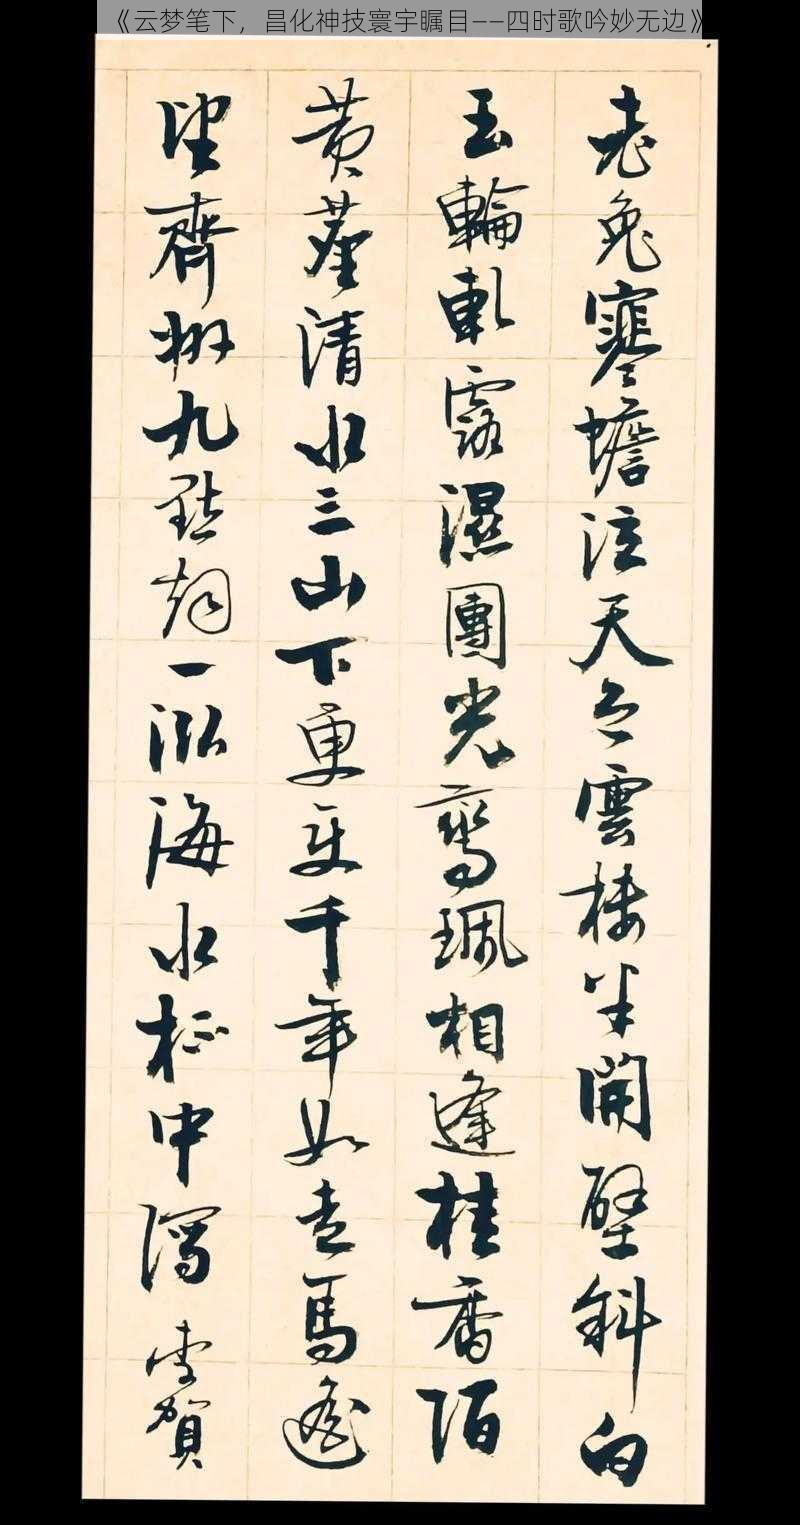 《云梦笔下，昌化神技寰宇瞩目——四时歌吟妙无边》
老兔寒蟾泣天色雲樓半開壁斜白
玉輪軋露濕團光鸞珮相逢桂香陌
黄塵清水三山下更變千年如走馬遙
望齊州九點烟一泓海水杯中瀉 李賀